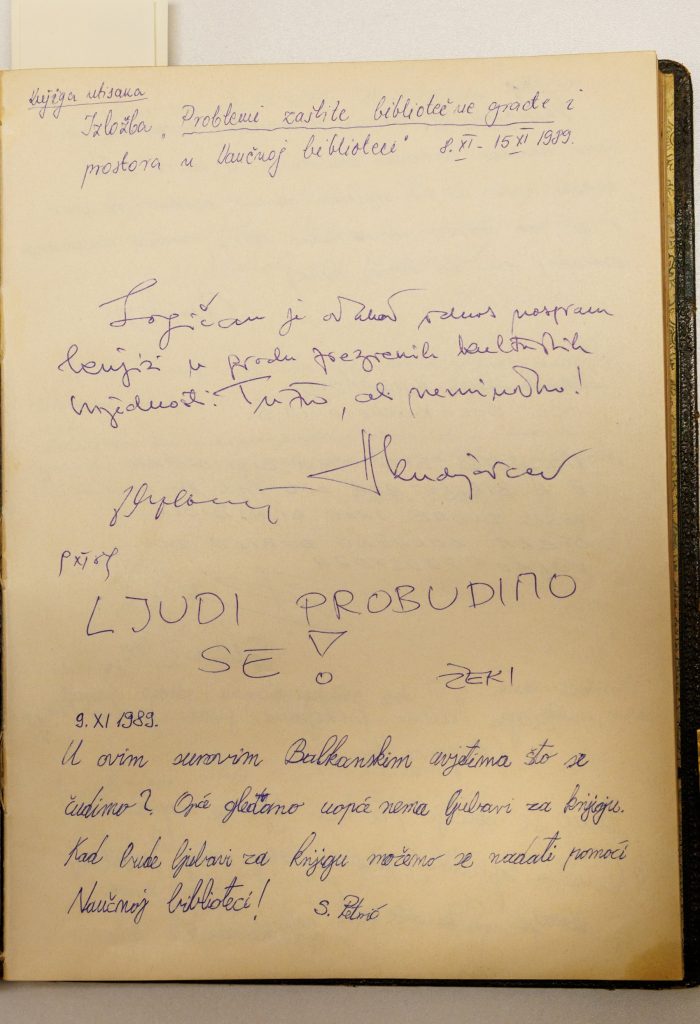 Knjiga utisaka
Izložba „Problemi zaštite bibliotečne građe i
prostora u Naučnoj biblioteci" 8.XI - 15 XI 1989.
Logičan je ovakav odnos naspram
knjizi u gradu prezrenih kulturnih
vrijednosti. Tužno, ali neminovno!
LJUDI PROBUDIMO
SE!
ZEKI
9. XI 1989.
U ovim surovim Balkanskim uvjetima što se
čudimo? Opće gledano uopće nema ljubavi za knjigu.
Kad bude ljubavi za knjigu možemo se nadati pomoći
Naučnoj biblioteci! S. Petrić